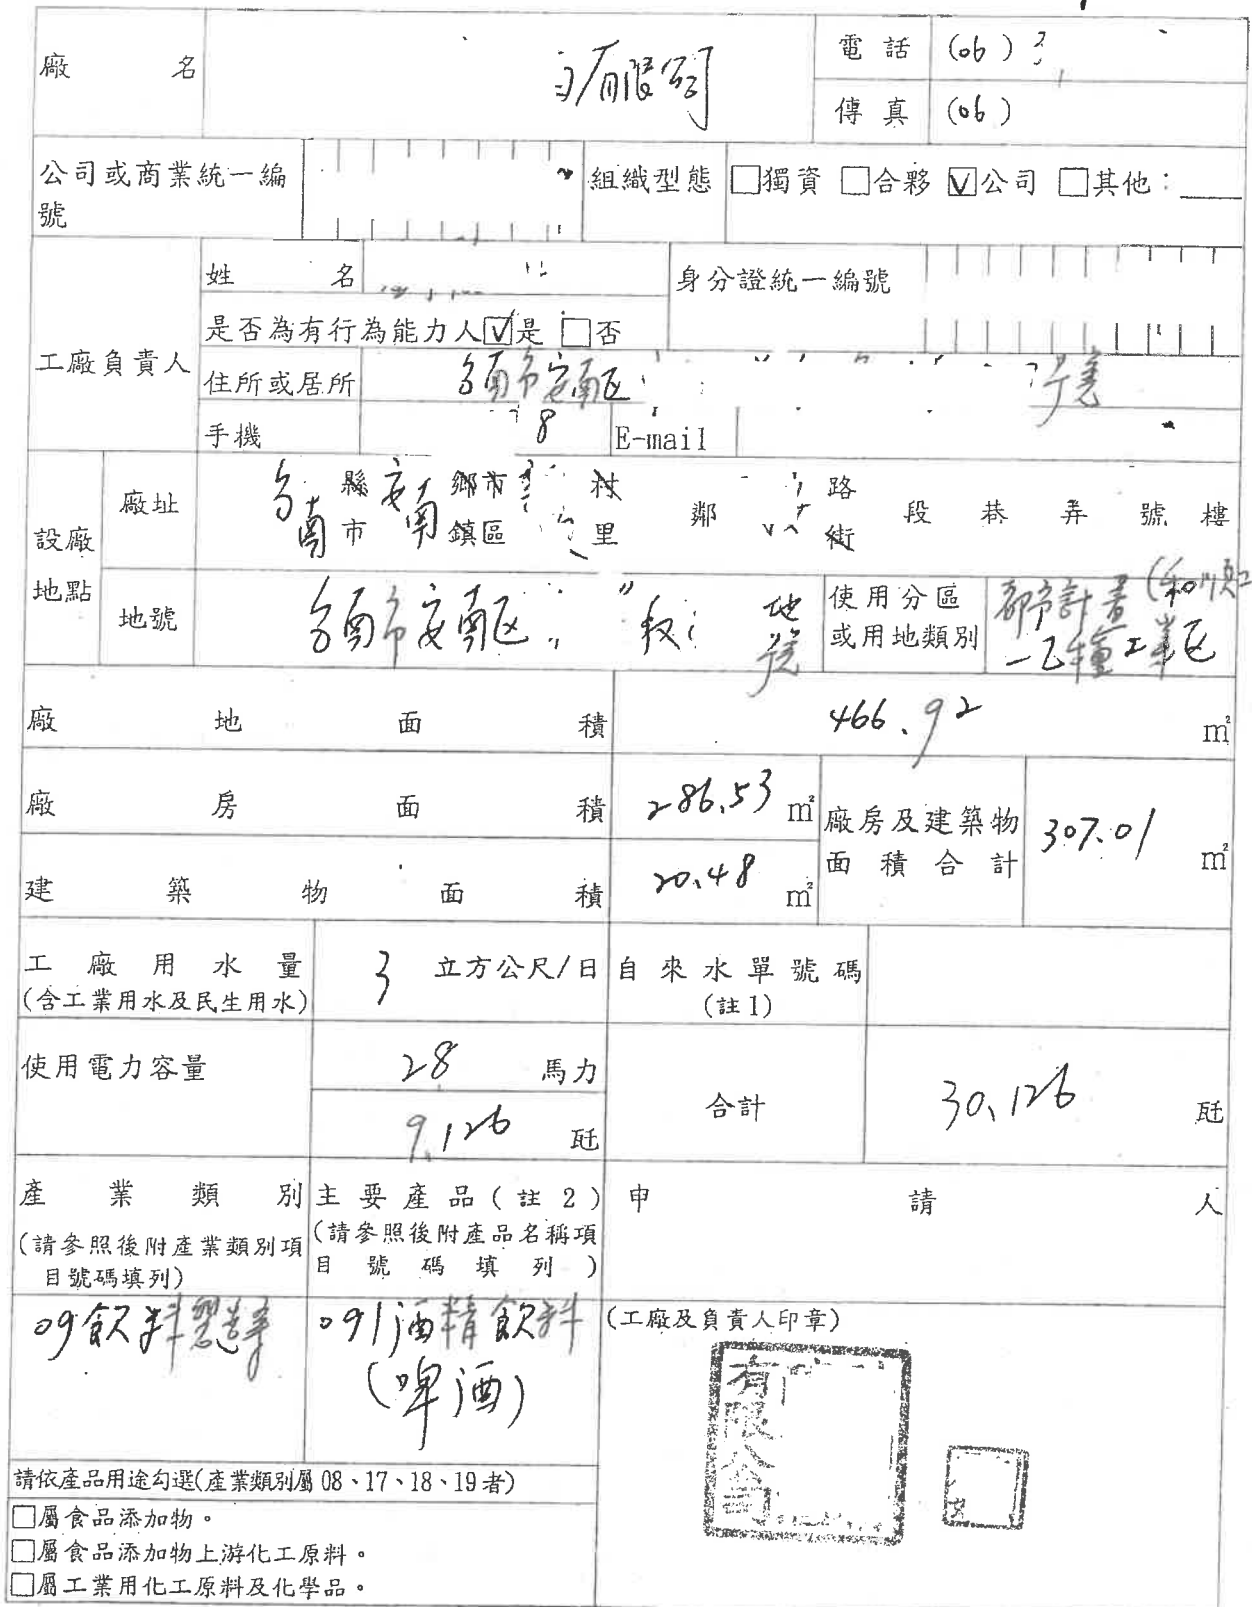 廠 名
有限公司
電話 (06)
傳真 (06)
公司或商業統一編號
組織型態 □獨資 □合夥 ☑公司 □其他：
工廠負責人
姓名
身分證統一編號
是否為有行為能力人☑是 □否
住所或居所 台南市安南區 號
手機 8 E-mail
設廠地點
廠址 台南 縣市 安南 鄉市鎮區 村里 鄰 路街 段 巷 弄 號 樓
地號 台南市安南區 段 地號
使用分區或用地類別 都市計畫(和順工
乙種工業區
廠地面積 466.92 ㎡
廠房面積 286.53 ㎡
廠房及建築物面積合計 307.01 ㎡
建築物面積 20.48 ㎡
工廠用水量 3 立方公尺/日 自來水單號碼
(含工業用水及民生用水) (註1)
使用電力容量 28 馬力
9.126 瓩
合計 30.126 瓩
產業類別 主要產品(註2) 申請人
(請參照後附產業類別項目號碼填列)
(請參照後附產品名稱項目號碼填列)
09飲料製造業 091酒精飲料
(啤酒)
(工廠及負責人印章)
有限公司
請依產品用途勾選(產業類別屬08、17、18、19者)
□屬食品添加物。
□屬食品添加物上游化工原料。
□屬工業用化工原料及化學品。